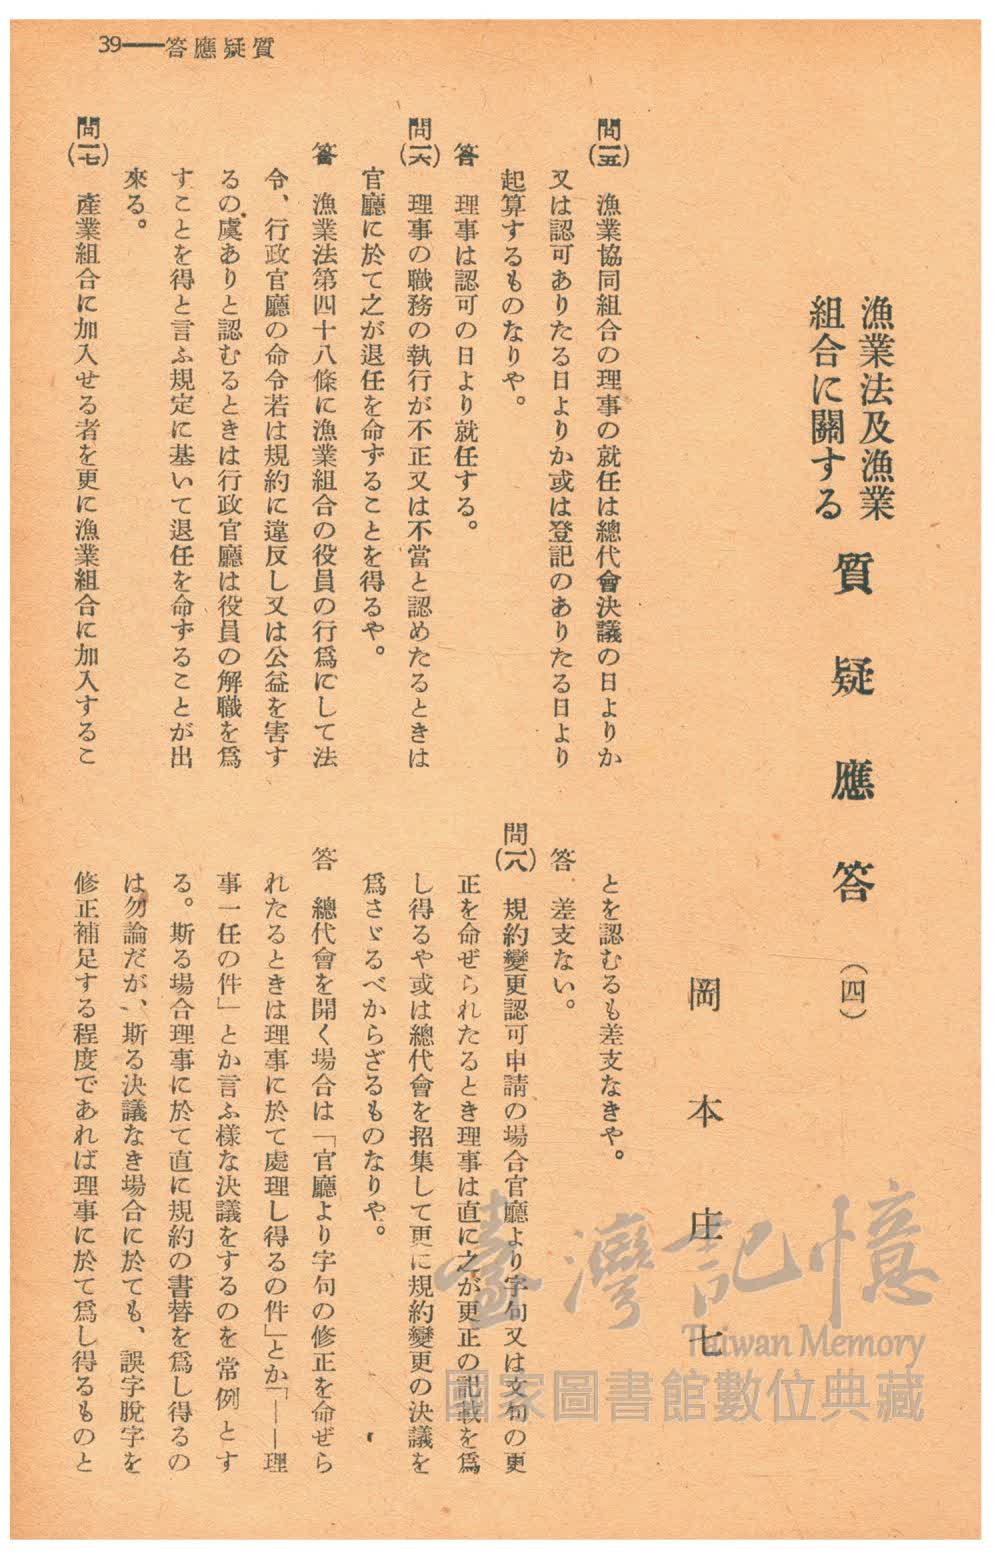 39——答應疑質
漁業法及漁業
組合に關する
質疑應答(四)
岡本庄七
問(一五) 漁業協同組合の理事の就任は總代會決議の日よりか
又は認可ありたる日よりか或は登記のありたる日より
起算するものなりや。
答 理事は認可の日より就任する。
問(一六) 理事の職務の執行が不正又は不當と認めたるときは
官廳に於て之が退任を命ずることを得るや。
答 漁業法第四十八條に漁業組合の役員の行爲にして法
令、行政官廳の命令若は規約に違反し又は公益を害す
るの虞ありと認むるときは行政官廳は役員の解職を爲
すことを得と言ふ規定に基いて退任を命ずることが出
來る。
問(一七) 產業組合に加入せる者を更に漁業組合に加入するこ
とを認むるも差支なきや。
答 差支ない。
問(一八) 規約變更認可申請の場合官廳より字句又は文句の更
正を命ぜられたるとき理事は直に之が更正の記載を爲
し得るや或は總代會を招集して更に規約變更の決議を
爲さゞるべからざるものなりや。
答 總代會を開く場合は「官廳より字句の修正を命ぜら
れたるときは理事に於て處理し得るの件」とか「——理
事一任の件」とか言ふ樣な決議をするのを常例とす
る。斯る場合理事に於て直に規約の書替を爲し得るの
は勿論だが、斯る決議なき場合に於ても、誤字脫字を
修正補足する程度であれば理事に於て爲し得るものと
臺灣記憶
Taiwan Memory
國家圖書館數位典藏